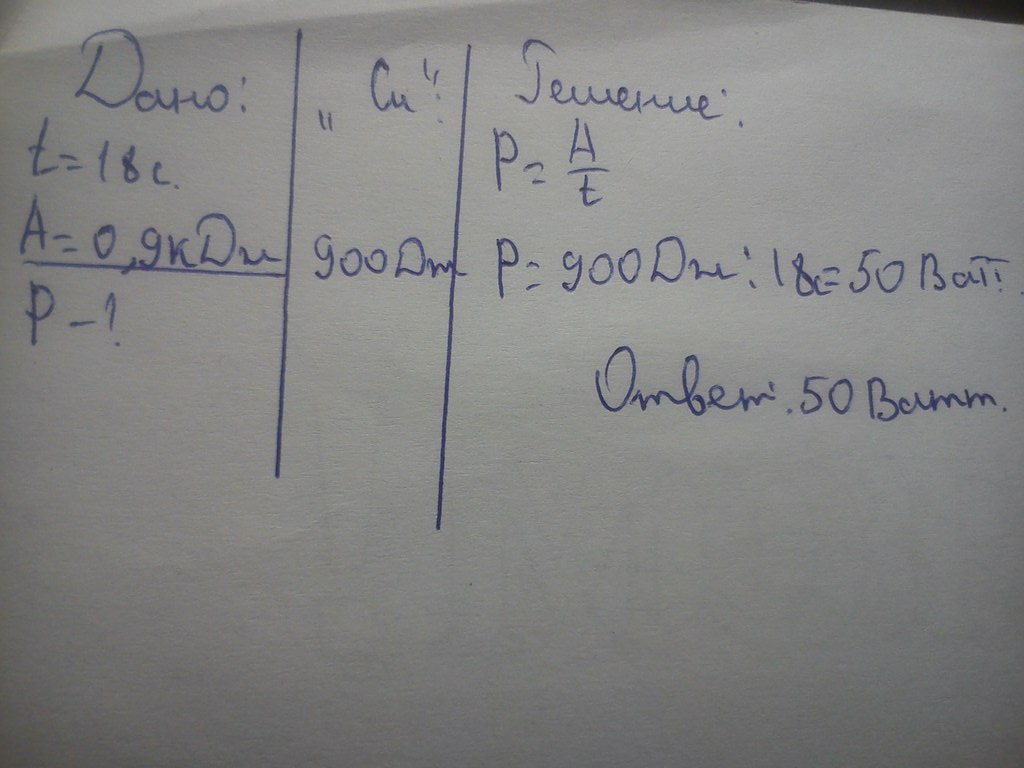 Дано:
t=18с.
A=0,9кДж
P-?
„Си":
900Дж
Решение:
P=A/t
P=900Дж:18с=50 Ватт.
Ответ:.50 Ватт.